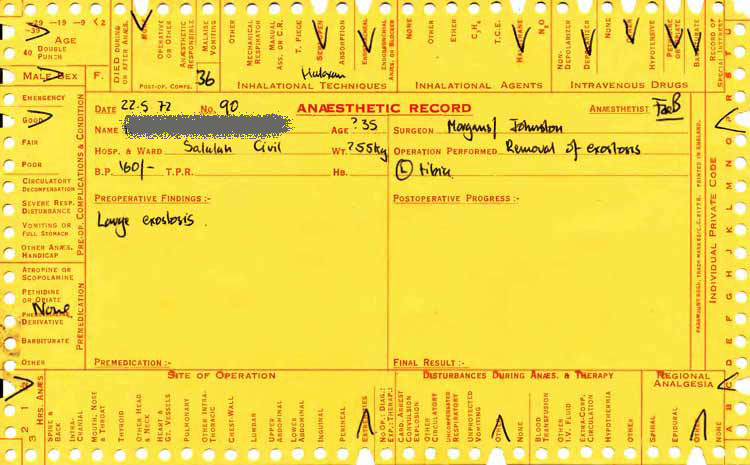 -39 -19 -9 < 2
AGE
40 DOUBLE PUNCH
MALE SEX F.
DIED DURING OR AFTER ANÆS.
NONE
OPERATIVE OR OTHER
ANÆSTHETIC RESPONSIBLE
MALAISE VOMITING
POST-OP. COMPS.
36
OTHER
MECHANICAL RESPIRATOR
MANUAL ASS. OR C.R.
T. PIECE
ABSORPTION
ENDOBRONCHIAL ANÆS. OR BLOCKER
Haloxan
INHALATIONAL TECHNIQUES
NONE
OTHER
ETHER
C3H6
T.C.E.
HALOTHANE
N2O
INHALATIONAL AGENTS
NON-DEPOLARIZER
DEPOLARIZER
NONE
OTHER
HYPOTENSIVE
PETHIDINE OR OPIATE
BARBITURATE
INTRAVENOUS DRUGS
RECORD OF SPECIAL INTEREST
EMERGENCY
GOOD
FAIR
POOR
CIRCULATORY DECOMPENSATION
SEVERE RESP. DISTURBANCE
VOMITING OR FULL STOMACH
OTHER ANÆS. HANDICAP
PRE-OP. COMPLICATIONS & CONDITION
ATROPINE OR SCOPOLAMINE
PETHIDINE OR OPIATE
None
DERIVATIVE
BARBITURATE
OTHER
PREMEDICATION
DATE 22-5 72 No. 90 ANÆSTHETIC RECORD ANÆSTHETIST
NAME AGE ?35 SURGEON Morgans/ Johnston
HOSP. & WARD Salalah Civil WT. ?55kg OPERATION PERFORMED Removal of exostosis
B.P. 160/- T.P.R. HB. (L) tibia
PREOPERATIVE FINDINGS :- POSTOPERATIVE PROGRESS :-
Large exostosis.
PREMEDICATION :- FINAL RESULT :-
PARAMOUNT REGD. TRADE MARK PRINTED IN ENGLAND.
INDIVIDUAL PRIVATE CODE
SITE OF OPERATION
DISTURBANCES DURING ANÆS. & THERAPY
REGIONAL ANALGESIA
3 2 1
HRS. ANÆS.
SPINE & BACK
INTRA-CRANIAL
MOUTH, NOSE & THROAT
THYROID
OTHER HEAD & NECK
HEART & GT. VESSELS
PULMONARY
OTHER INTRA-THORACIC
CHEST-WALL
LUMBAR
UPPER ABDOMINAL
LOWER ABDOMINAL
INGUINAL
PERINEAL
EXTREMITIES
NO. OF DIAG.: EXP.: THERAP.:
CARD. ARREST CONVULSION EXPLOSION
OTHER CIRCULATORY
UNCOMPENSATED RESPIRATORY
UNPROTECTED VOMITING
OTHER
NONE
BLOOD TRANSFUSION
OR I.V. FLUID
EXTRA-CORP. CIRCULATION
HYPOTHERMIA
OTHER
SPINAL
EPIDURAL
OTHER
NONE